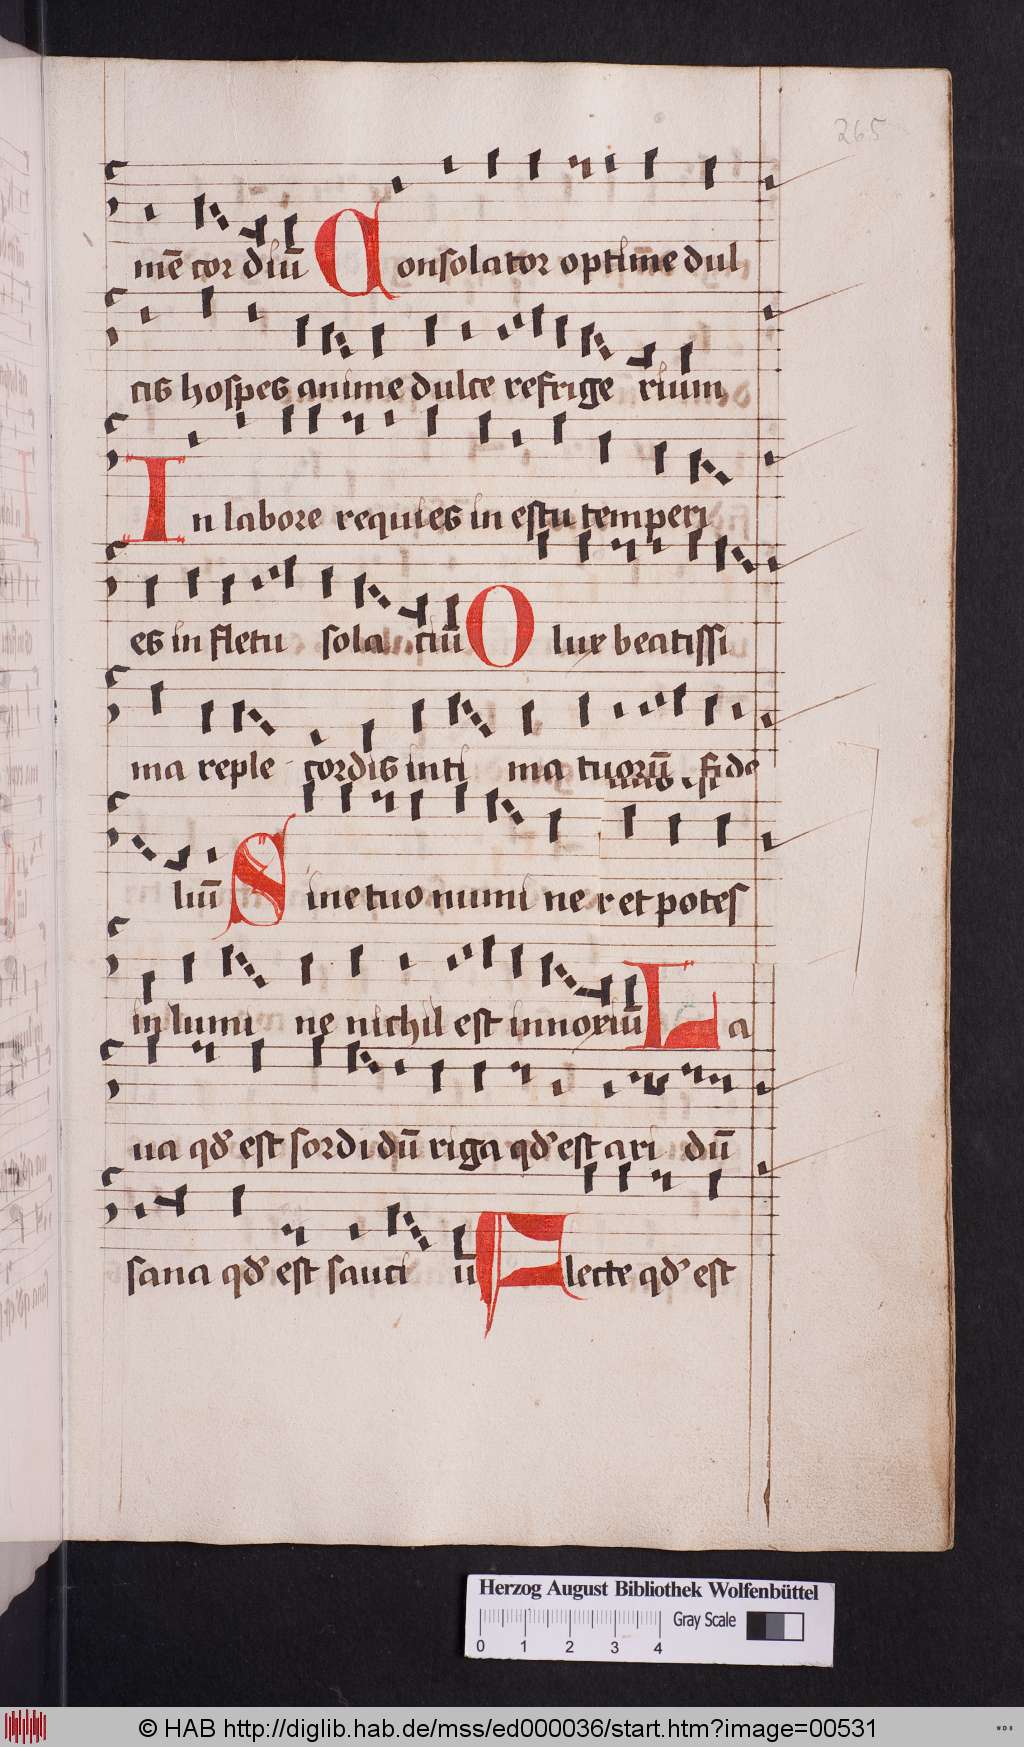 265
mē cor diū Consolator optime dul
cis hospes anime dulce refrige rium
In labore requies in estu temperi
es in fletu sola ciū O lux beatissi
ma reple cordis inti ma tuorū fide
liū Sine tuo numi ne r et potes
in lumi ne nichil est innoxiū La
ua qd' est sordidū riga qd' est ari dū
sana qd' est sauci ū Flecte qd' est
Herzog August Bibliothek Wolfenbüttel
Gray Scale
0 1 2 3 4
© HAB http://diglib.hab.de/mss/ed000036/start.htm?image=00531